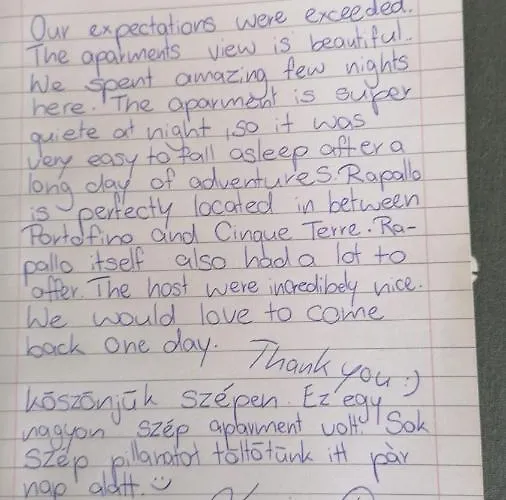 Our expectations were exceeded.
The aparments view is beautiful.
We spent amazing few nights
here. The aparment is super
quiete at night, so it was
very easy to fall asleep after a
long day of adventures. Rapallo
is perfecty located in between
Portofino and Cinque Terre. Ra-
pallo itself also had a lot to
offer. The host were incredibely nice.
We would love to come
back one day. Thank you :)
Köszönjük szépen. Ez egy
nagyon szép aparment volt. Sok
szép pillanatot töltöttünk itt pàr
nap alatt. :)